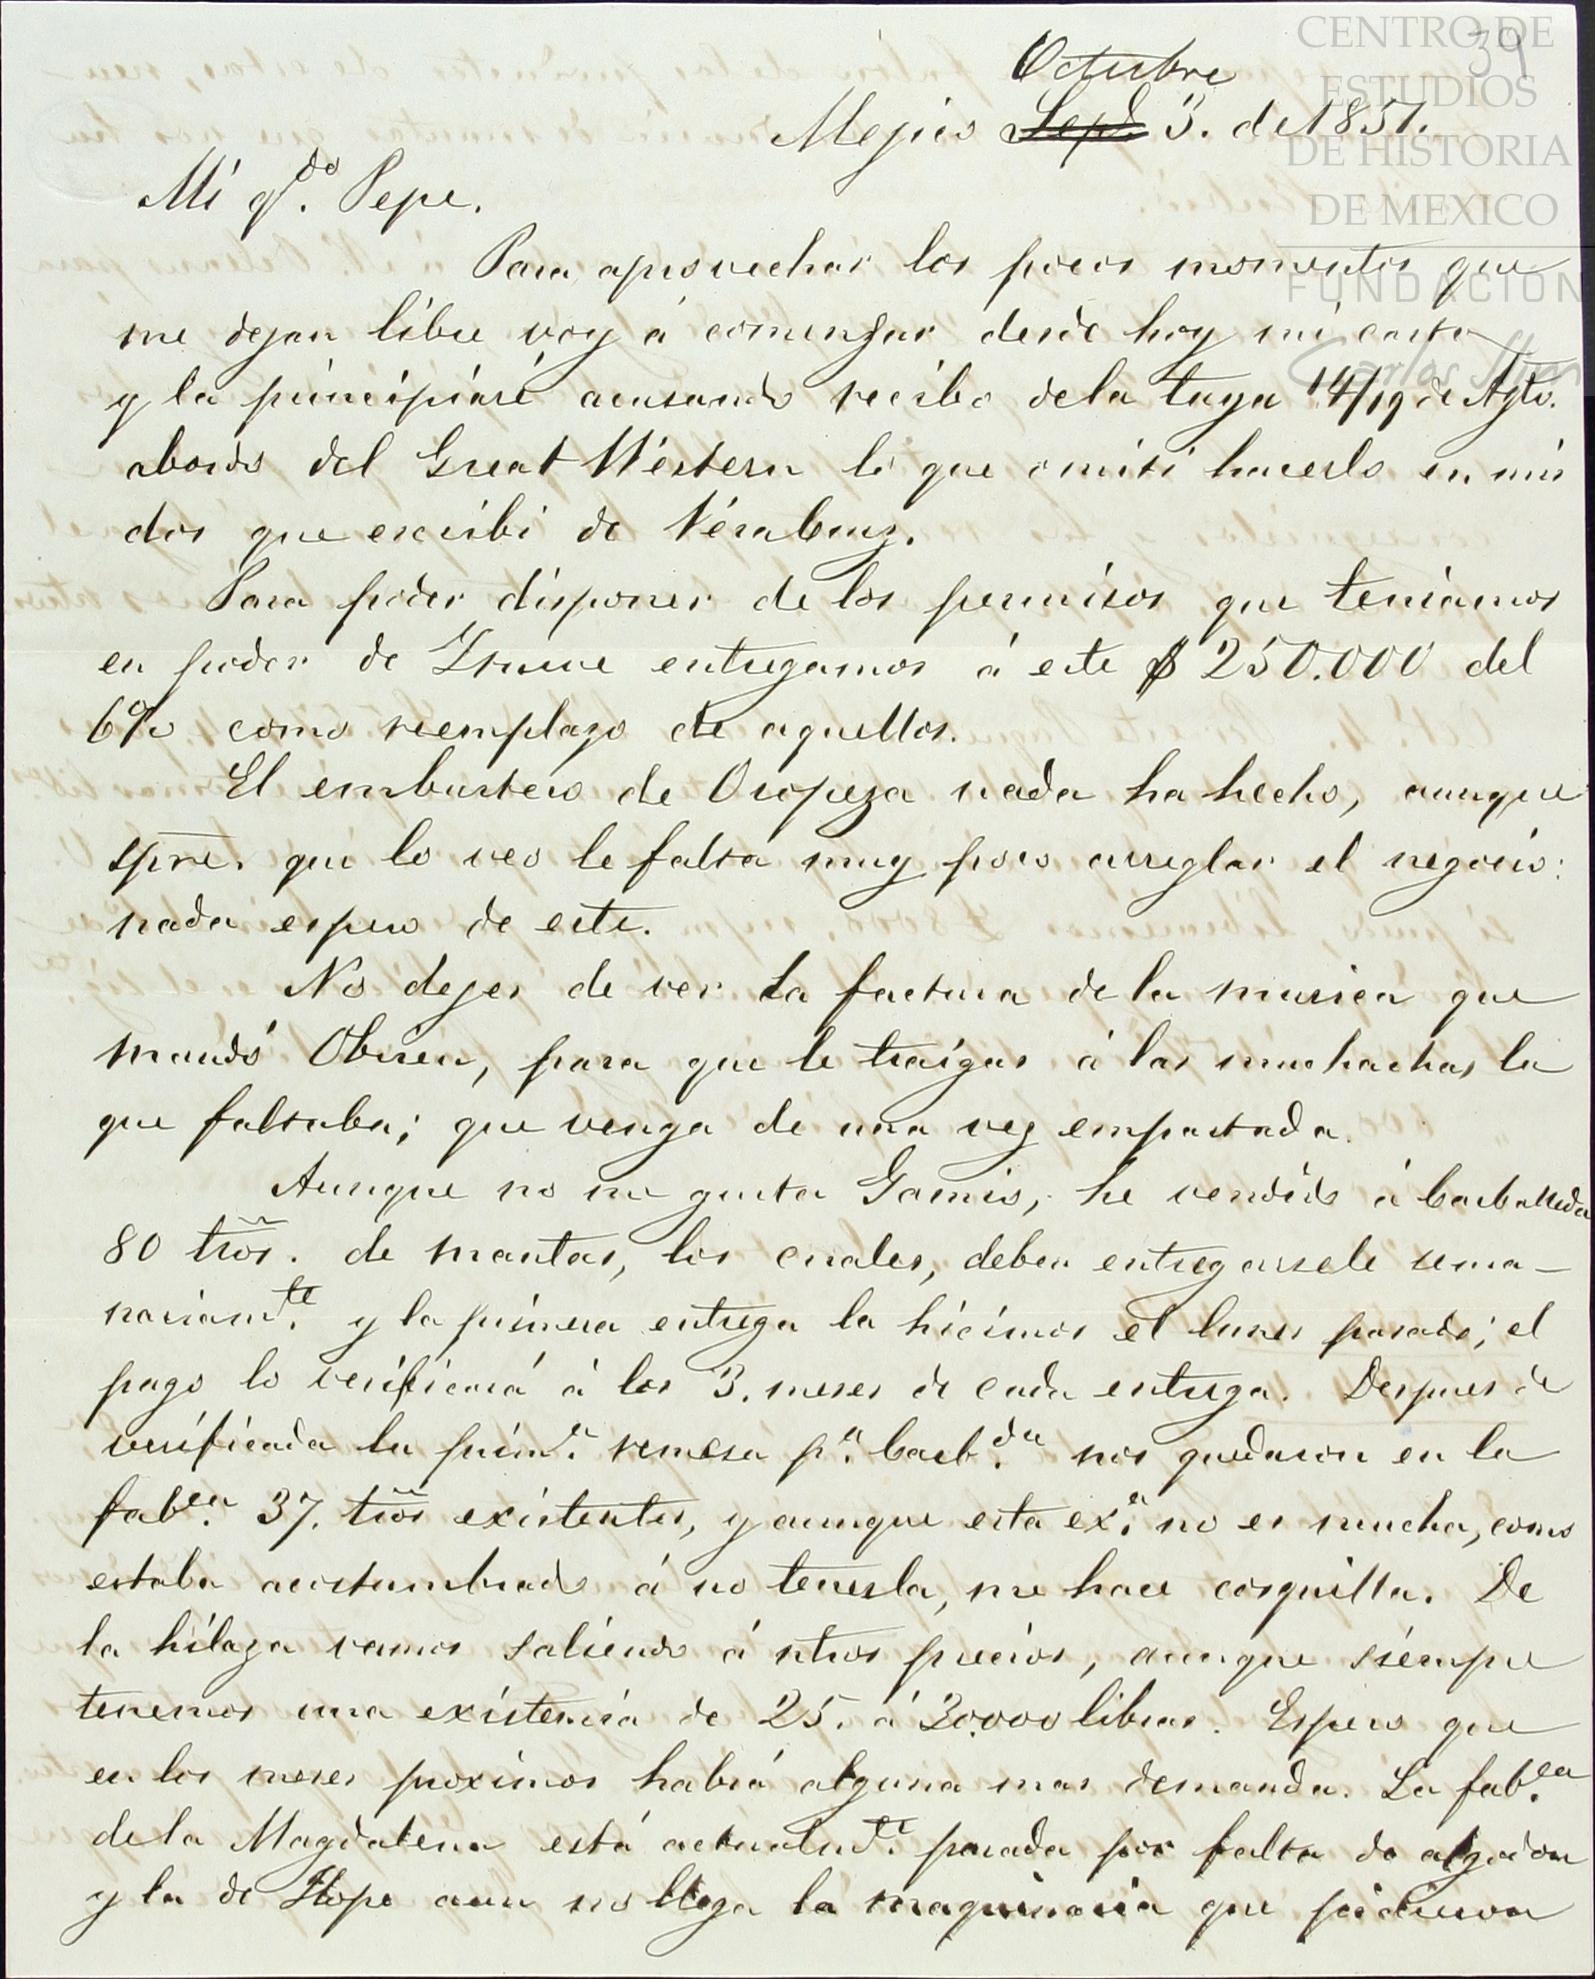 CENTRO DE
ESTUDIOS
DE HISTORIA
DE MEXICO
FUNDACION
Carlos Slim
39
Octubre
Mejico Sept. 3. de 1851.
Mi qdo. Pepe.
Para aprovechar los pocos momentos que
me dejan libre voy á comenzar desde hoy mi carta
y la principiaré acusando recibo dela tuya 14/19 de Agto.
abordo del Great Western lo que omiti hacerlo en mis
dos que escribi de Veracruz.
Para poder disponer de los permisos que teniamos
en poder de entregamos á este $ 250.000 del
6% como reemplazo de aquellos.
El embustero de Oropeza nada ha hecho, aunque
spre. que lo veo le falta muy poco arreglar el negocio:
nada espero de este.
No dejes de ver la factura de la musica que
mandó Obrien, para que le traigas á las muchachas la
que faltaba; que venga de una vez empastada.
Aunque no me gusta Gamio, he vendido á Carballeda
80 trõs. de mantas, los cuales, deben entregarsele sema-
nariamte. y la primera entrega la hicimos el lunes pasado; el
pago lo verificará á los 3. meses de cada entrega. Despues de
verificada la prima. remesa pa. Carbda. nos quedaron en la
fabca. 37. trõs existentes, y aunque esta exa. no es mucha, como
estaba acostumbrado á no tenerla, me hace cosquilla. De
la hilaza vamos saliendo á ntros precios, aunque siempre
tenemos una existencia de 25. á 30.000 libras. Espero que
en los meses proximos habrá alguna mas demanda. La fabca.
dela Magdalena está actualmte. parada por falta de algodon
y la de Hope aun no llega la maquinaria que pidieron